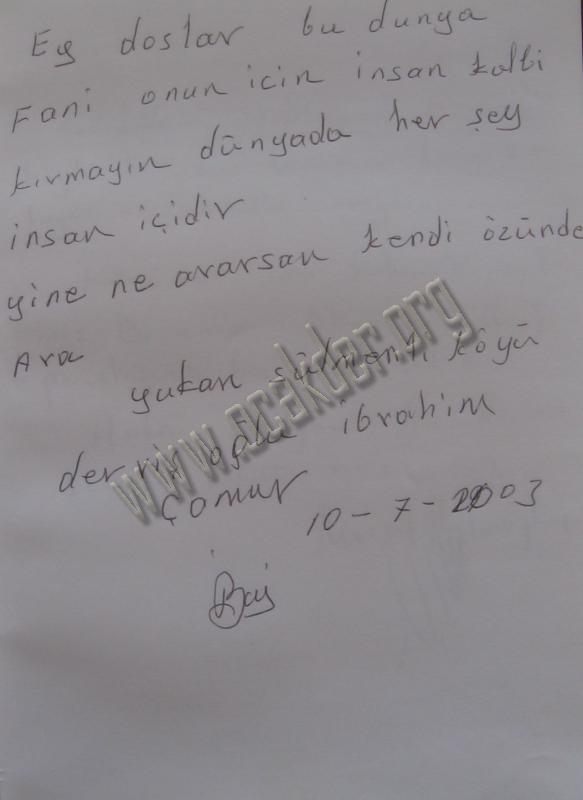 Ey dostlar bu dunya
Fani onun icin insan kalbi
kırmayın dünyada her şey
insan içidir
yine ne ararsan kendi özünde
Ara
yukarı sülmenli köyü
derviş oğlu ibrahim
Çomur
10-7-2003
www.ocakder.org